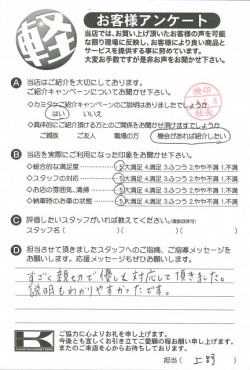 軽
お客様アンケート
当店では、お買い上げ頂いたお客様の声を可能
な限り現場に反映し、お客様により良い商品と
サービスを提供する事に努めています。
大変お手数ですが是非お声をお聞かせ下さい。
A 当店はご紹介を大切にしております。
ご紹介キャンペーンについてお聞かせ下さい。
◇カミタケご紹介キャンペーンのご説明はありましたでしょうか
はい いいえ
◇具体的にご紹介頂ける方とのご関係をお聞かせ頂けますでしょうか
ご親族 ご友人 職場の方 機会があれば紹介したい
検印
社長
B 当店を実際にご利用になった印象をお聞かせ下さい。
◇総合的な満足度 5大満足 4.満足 3.ふつう 2.やや不満 1.不満
◇スタッフの対応 5大満足 4.満足 3.ふつう 2.やや不満 1.不満
◇お店の雰囲気、清掃 5大満足 4.満足 3.ふつう 2.やや不満 1.不満
◇納車時のお車の状態 5大満足 4.満足 3.ふつう 2.やや不満 1.不満
C 評価したいスタッフがいれば教えてください。(複数回答可)
スタッフ名( )( )
D 担当させて頂きましたスタッフへのご指摘、ご指導メッセージを
お願いします。応援メッセージもぜひお願いします。
すごく親切で優しく対応して頂きました。
説明もわかりやすかったです。
K
ご協力に心よりお礼を申し上げます。
今後とも宜しくお引き立てご愛顧の程お願い申し上げます。
またのご来店を心からお待ちしております。
担当( 上野 )